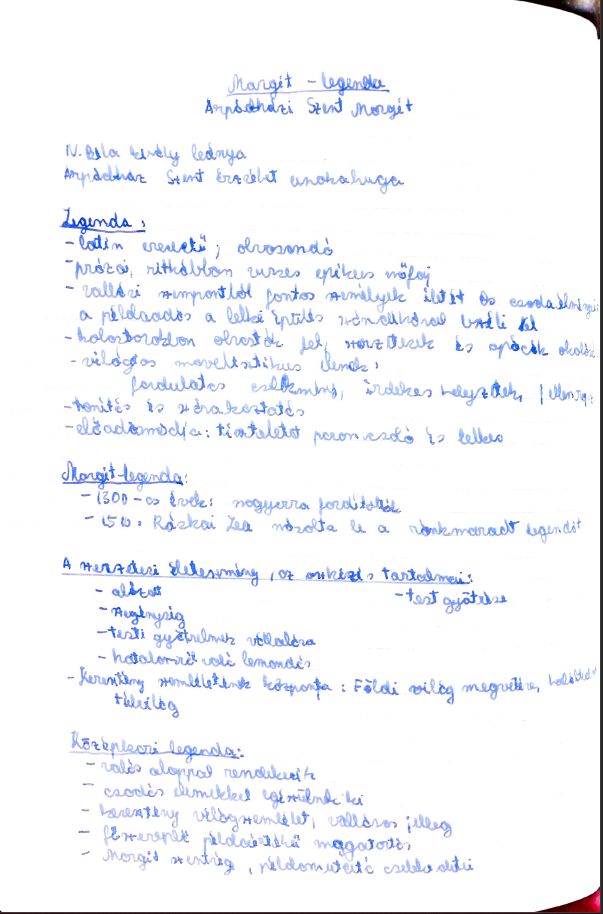 Margit - legenda
Árpádházi Szent Margit
IV. Béla király leánya
Árpádház Szent Erzsébet unokahuga
Legenda:
- latin eredetű; olvasandó
- prózai, ritkábban verses epikus műfaj
- vallási szempontból fontos személyek életét és csoda
a példaadás a lelki épülés szándékával
- kolostorokban olvasták fel, szerzetesek és apácák
- világias novellisztikus elemek:
fordulatos cselekmény, érdekes helyzetek,
- tanítás és szórakoztatás
- előadásmódja: tiszteletet parancsoló és lelkes
Margit-legenda:
- 1300-as évek: magyarra fordították
- 1510: Ráskai Lea másolta le a ránkmaradt legendát
A szerzetesi életeszmény, az aszkézis tartalmai:
- alázat - test gyötrése
- szegénység
- testi gyötrelmek vállalása
- hatalomról való lemondás
- Keresztény szemléletének központja: Földi világ megvetése,
túlvilág
Középkori legenda:
- valós alappal rendelkezik
- csodás elemekkel egészülnek ki
- keresztény világszemlélet, vallásos jelleg
- főszereplő példaértékű magatartás
- Margit szentség, példamutató cselekedetei